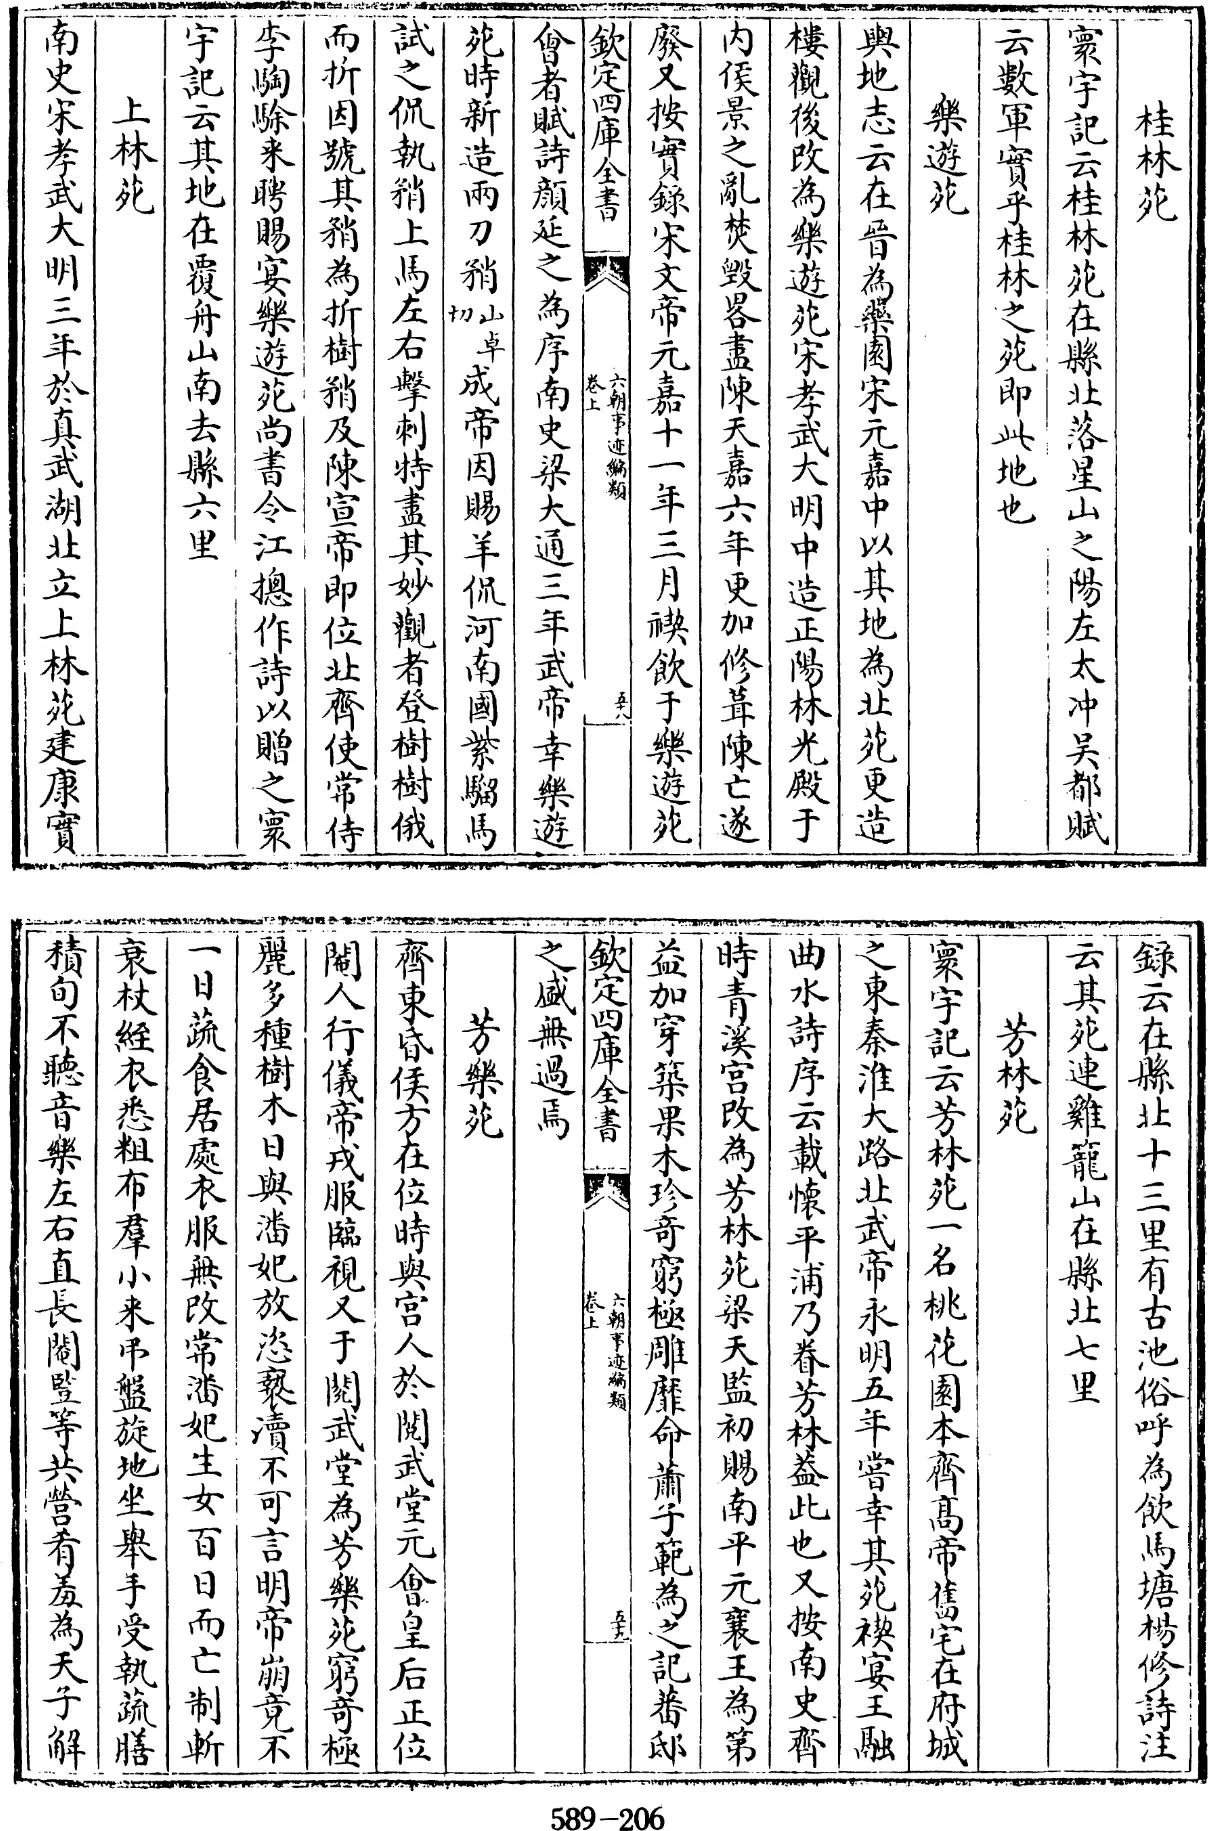 桂林苑
寰宇記云桂林苑在縣北落星山之陽左太冲吴都賦
云數軍實乎桂林之苑即此地也
樂遊苑
輿地志云在晉為藥園宋元嘉中以其地為北苑更造
樓觀後改為樂遊苑宋孝武大明中造正陽林光殿于
内侯景之亂焚毁畧盡陳天嘉六年更加修葺陳亡遂
廢又按實錄宋文帝元嘉十一年三月禊飲于樂遊苑
欽定四庫全書
六朝事迹編類
卷上
五十八
㑹者賦詩顔延之為序南史梁大通三年武帝幸樂遊
苑時新造兩刀矟山卓切成帝因賜羊侃河南國紫騮馬
試之侃執矟上馬左右擊刺特盡其妙觀者登樹樹俄
而折因號其矟為折樹矟及陳宣帝即位北齊使常侍
李騊駼来聘賜宴樂遊苑尚書令江摠作詩以贈之寰
宇記云其地在覆舟山南去縣六里
上林苑
南史宋孝武大明三年於真武湖北立上林苑建康實
錄云在縣北十三里有古池俗呼為飲馬塘楊修詩注
云其苑連雞籠山在縣北七里
芳林苑
寰宇記云芳林苑一名桃花園本齊髙帝舊宅在府城
之東秦淮大路北武帝永明五年嘗幸其苑禊宴王融
曲水詩序云載懐平浦乃眷芳林葢此也又按南史齊
時青溪宫改為芳林苑梁天監初賜南平元襄王為第
益加穿築果木珍奇窮極雕靡命蕭子範為之記蕃邸
欽定四庫全書
六朝事迹編類
卷上
五十九
之盛無過焉
芳樂苑
齊東昏侯方在位時與宫人於閱武堂元會皇后正位
閹人行儀帝戎服臨視又于閱武堂為芳樂苑窮奇極
麗多種樹木日與潘妃放恣褻瀆不可言明帝崩竟不
一日蔬食居處衣服無改常潘妃生女百日而亡制斬
衰杖絰衣悉粗布羣小来弔盤旋地坐舉手受執蔬膳
積旬不聽音樂左右直長閹豎等共營肴羞為天子解
589-206